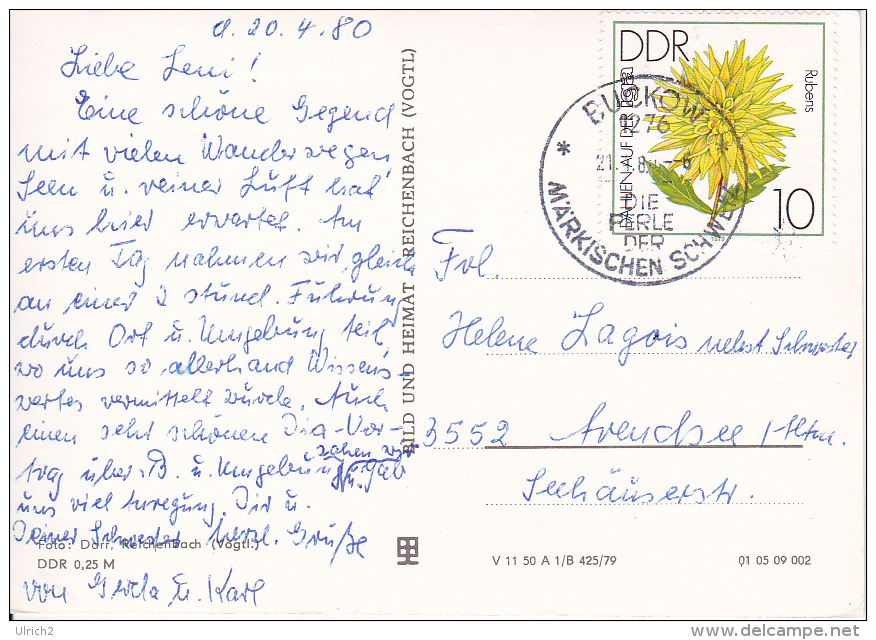 d. 20.4.80
Liebe Leni!
Eine schöne Gegend
mit vielen Wanderwegen,
Seen u. reiner Luft hat
uns hier erwartet. Am
ersten Tag nahmen wir gleich
an einer 2 stünd. Führung
durch Ort u. Umgebung teil,
wo uns so allerhand Wissens-
wertes vermittelt wurde. Auch
einen sehr schönen Dia-Vor-
trag über B. u. Umgebung
sahen wir
u. gab
uns viel Anregung. Dir u.
Deiner Schwester herzl. Grüße
von Gerda u. Karl
Foto: Darr, Reichenbach (Vogtl.)
DDR 0,25 M
BILD UND HEIMAT REICHENBACH (VOGTL)
DDR
DAHLIEN AUF DER
Rubens
10
1979
BUCKOW
1276
21. 80 -6
DIE
PERLE
DER
MÄRKISCHEN SCHWEIZ
Frl.
Helene Lagois nebst Schwester
3552 Arendsee/Altm.
Seehäuserstr.
V 11 50 A 1/B 425/79
01 05 09 002
Ulrich2
delcampe.net